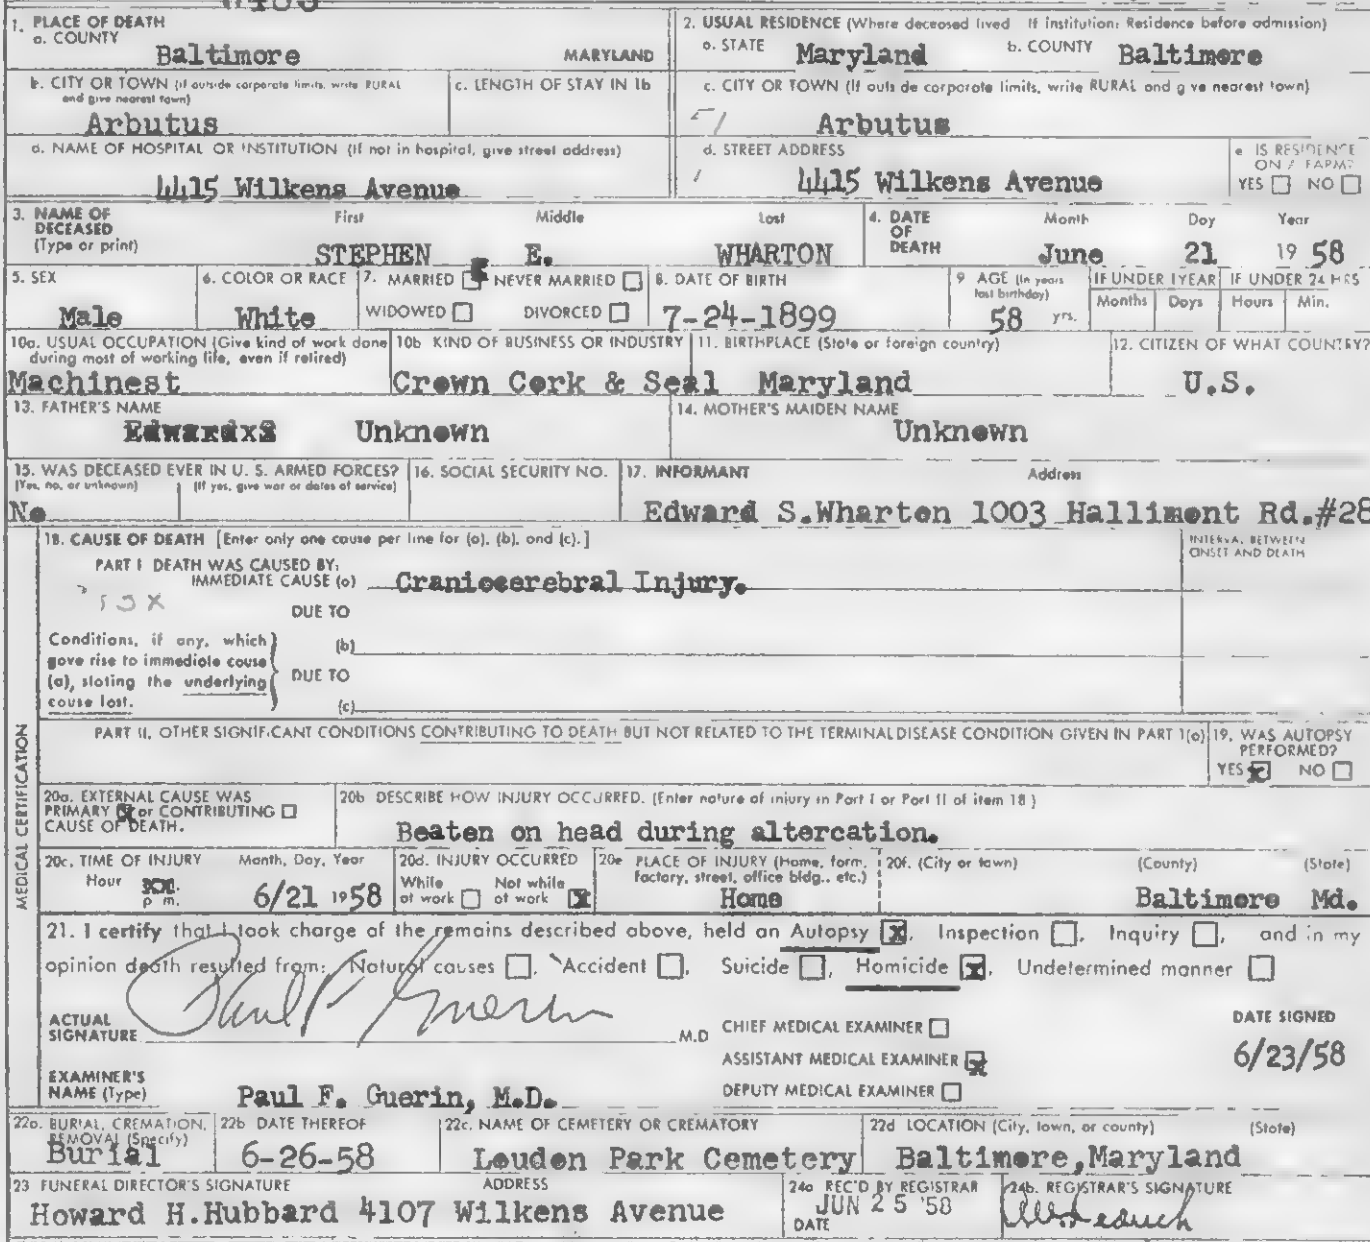 1. PLACE OF DEATH
a. COUNTY
Baltimore MARYLAND
2. USUAL RESIDENCE (Where deceased lived If institution: Residence before admission)
a. STATE Maryland b. COUNTY Baltimore
b. CITY OR TOWN (If outside corporate limits, write RURAL and give nearest town)
Arbutus
c. LENGTH OF STAY IN 1b
c. CITY OR TOWN (If outs de corporate limits, write RURAL and g ve nearest town)
Arbutus
d. NAME OF HOSPITAL OR INSTITUTION (If not in hospital, give street address)
4415 Wilkens Avenue
d. STREET ADDRESS
4415 Wilkens Avenue
e IS RESIDENCE
ON A FARM?
YES NO
3. NAME OF DECEASED (Type or print)
First Middle Last
STEPHEN E. WHARTON
4. DATE OF DEATH
Month Day Year
June 21 19 58
5. SEX
Male
6. COLOR OR RACE
White
7. MARRIED NEVER MARRIED
WIDOWED DIVORCED
8. DATE OF BIRTH
7-24-1899
9 AGE (In years last birthday)
58 yrs.
IF UNDER 1 YEAR IF UNDER 24 HRS
Months Days Hours Min.
10a. USUAL OCCUPATION (Give kind of work done during most of working life, even if retired)
Machinest
10b KIND OF BUSINESS OR INDUSTRY
Crown Cork & Seal
11. BIRTHPLACE (State or foreign country)
Maryland
12. CITIZEN OF WHAT COUNTRY?
U.S.
13. FATHER'S NAME
Unknown
14. MOTHER'S MAIDEN NAME
Unknown
15. WAS DECEASED EVER IN U. S. ARMED FORCES?
(Yes, no, or unknown) (If yes, give war or dates of service)
No
16. SOCIAL SECURITY NO.
17. INFORMANT Address
Edward S.Wharton 1003 Hallimont Rd.#28
MEDICAL CERTIFICATION
18. CAUSE OF DEATH [Enter only one cause per line for (a), (b), and (c).]
INTERVAL BETWEEN
ONSET AND DEATH
PART I DEATH WAS CAUSED BY:
IMMEDIATE CAUSE (a) Craniocerebral Injury.
DUE TO
Conditions, if any, which
gave rise to immediate cause
(a), stating the underlying
cause last.
(b)
DUE TO
(c)
PART II. OTHER SIGNIFICANT CONDITIONS CONTRIBUTING TO DEATH BUT NOT RELATED TO THE TERMINAL DISEASE CONDITION GIVEN IN PART 1(a)
19. WAS AUTOPSY
PERFORMED?
YES x NO
20a. EXTERNAL CAUSE WAS
PRIMARY x or CONTRIBUTING
CAUSE OF DEATH.
20b DESCRIBE HOW INJURY OCCURRED. (Enter nature of injury in Part I or Part II of item 18)
Beaten on head during altercation.
20c. TIME OF INJURY Month, Day, Year
Hour p m. 6/21 1958
20d. INJURY OCCURRED
While at work Not while at work x
20e PLACE OF INJURY (Home, farm, factory, street, office bldg., etc.)
Home
20f. (City or town) (County) (State)
Baltimore Md.
21. I certify that I took charge of the remains described above, held an Autopsy x, Inspection , Inquiry , and in my
opinion death resulted from: Natural causes , Accident , Suicide , Homicide x, Undetermined manner
ACTUAL
SIGNATURE Paul F Guerin M.D
CHIEF MEDICAL EXAMINER
ASSISTANT MEDICAL EXAMINER x
DEPUTY MEDICAL EXAMINER
DATE SIGNED
6/23/58
EXAMINER'S
NAME (Type) Paul F. Guerin, M.D.
22a. BURIAL, CREMATION, REMOVAL (Specify)
Burial
22b DATE THEREOF
6-26-58
22c. NAME OF CEMETERY OR CREMATORY
Louden Park Cemetery
22d LOCATION (City, town, or county) (State)
Baltimore,Maryland
23 FUNERAL DIRECTOR'S SIGNATURE ADDRESS
Howard H.Hubbard 4107 Wilkens Avenue
24a REC'D BY REGISTRAR
DATE JUN 25 '58
24b. REGISTRAR'S SIGNATURE